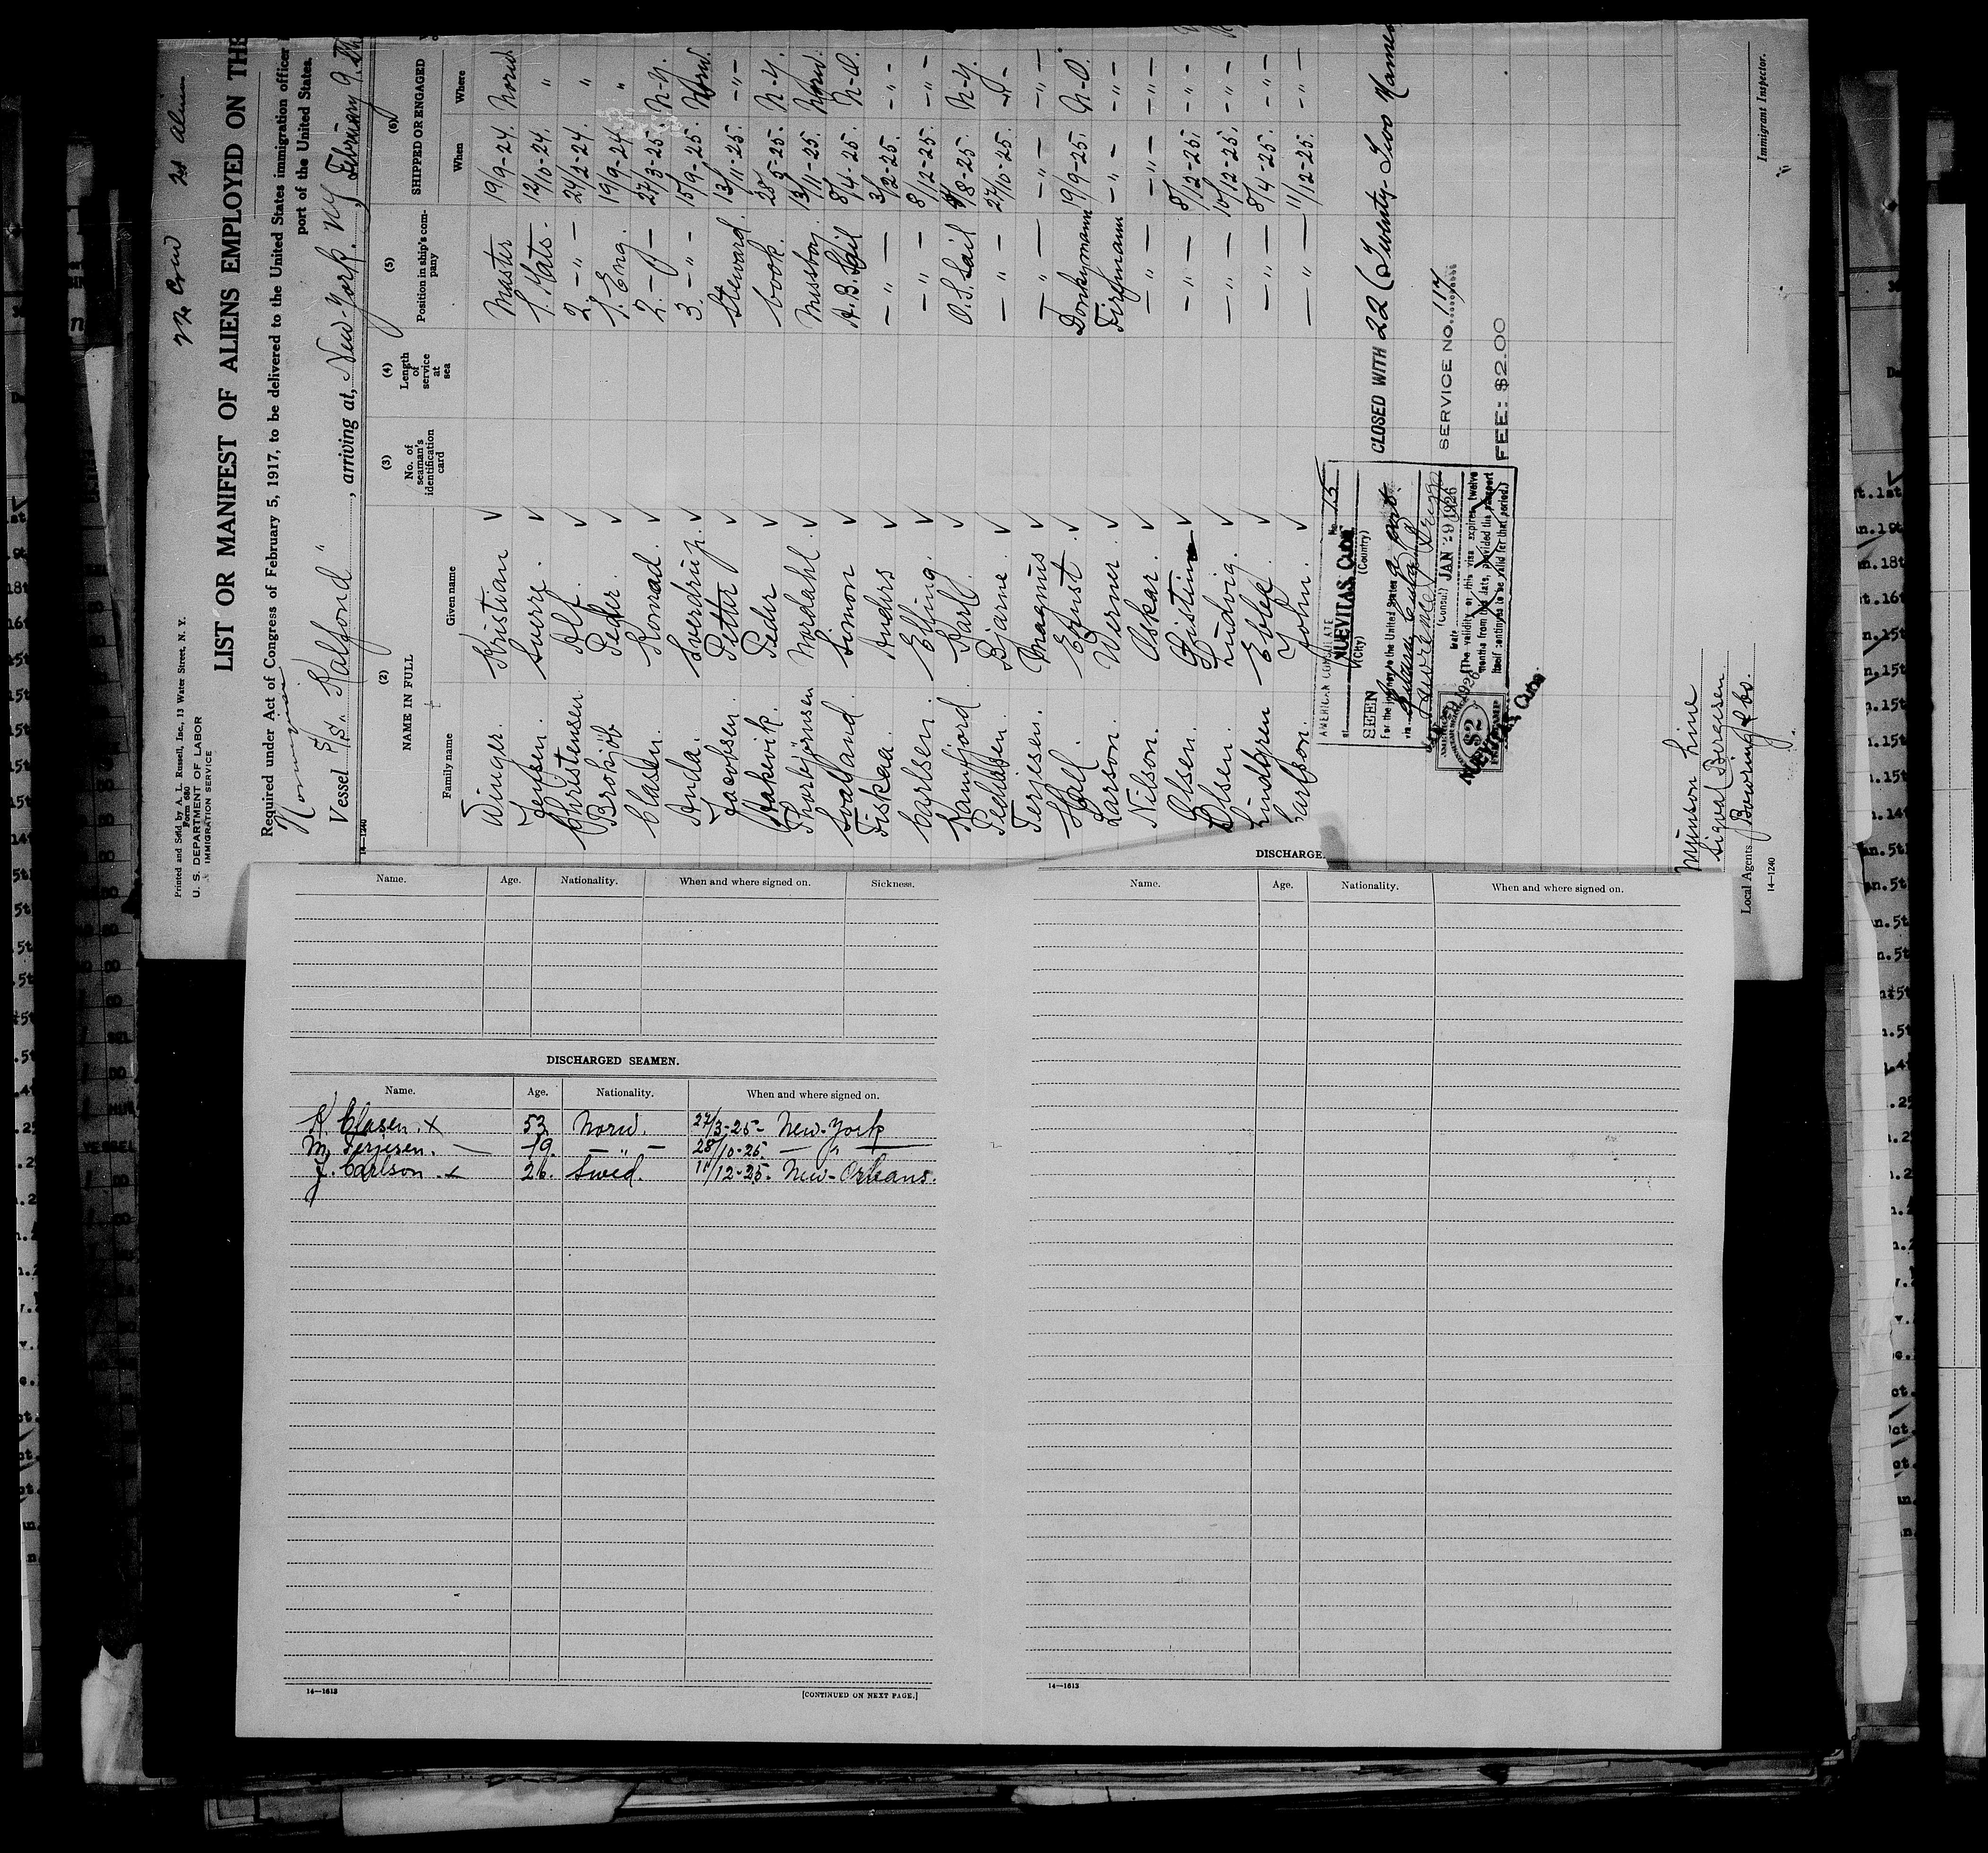 22 Crew 22 Alien
Printed and Sold by A. L. Russell, Inc., 13 Water Street, N. Y.
Form 680
U. S. DEPARTMENT OF LABOR
IMMIGRATION SERVICE
LIST OR MANIFEST OF ALIENS EMPLOYED ON THE
Required under Act of Congress of February 5, 1917, to be delivered to the United States immigration officer
port of the United States.
Norwegian
Vessel S/S. "Kalfond", arriving at, New-York. NY, February 9.
14—1240
(2) (3) (4) (5) (6)
NAME IN FULL No. of seaman's identification card Length of service at sea Position in ship's company SHIPPED OR ENGAGED
Family name Given name When Where
Winger. Kristian Master 19/9-24. Norw.
Jensen. Sverre. 1. Mate. 12/10-24. "
Christensen. Alf. 2. —"— 24/2-24. "
Brokjöb Peder. 1. Eng. 19/9-24. "
Clasen. Konrad. 2. —"— 27/3-25. N-Y.
Anda. Sverdrup. 3. —"— 15/9-25. Norw.
Jacobsen. Petter Steward. 13/11-25. —"—
Vakevik. Peder Cook. 28/5-25. N-Y.
Thorbjörnsen Nordahl. Messboy. 13/11-25. Norw.
Svalland. Simon A.B. Sail 8/4-25. N-O.
Fiskaa. Anders —"— 3/12-25. —"—
Carlsen. Elling. —"— 8/12-25. —"—
Hamfjord. Karl. O.S. Sail 4/8-25. N-Y.
Pedersen. Bjarne. —"— 27/10-25. —"—
Terjesen. Magnus —"— —"— —"—
Hall. Ernst. Donkymann 19/9-25. N-O.
Larson. Werner. Firemann —"— —"—
Nilson. Oskar. —"— —"— —"—
Olsen. —"— 8/12-25. —"—
Olsen. Ludvig. —"— 10/12-25. —"—
Lindgren —"— 8/4-25. —"—
Carlson. John. —"— 11/12-25. —"—
AMERICAN CONSULATE No. 15
at NUEVITAS, Cuba
(City) (Country)
SEEN
For the journey to the United States
via
(Consul)
Date JAN 29 1926
(The validity of this visa expires twelve
months from this date, provided the passport
itself continues to be valid for that period.)
CLOSED WITH 22 (Twenty-Two Names
SERVICE NO. 117
FEE: $2.00
$2
Munson Line
Sigval Bergesen
Local Agents. Bowring & Co.
14—1240
Immigrant Inspector.
DISCHARGE
Name. Age. Nationality. When and where signed on. Sickness.
DISCHARGED SEAMEN.
Name. Age. Nationality. When and where signed on.
K Clasen. x 53 Norw. 27/3-25- New-York
M. Terjesen. — 19. —"— 28/10-25. —"—
J. Carlson. x 26. Swed. 11/12-25. New-Orleans.
14—1613
[CONTINUED ON NEXT PAGE.]
Name. Age. Nationality. When and where signed on.
14—1613